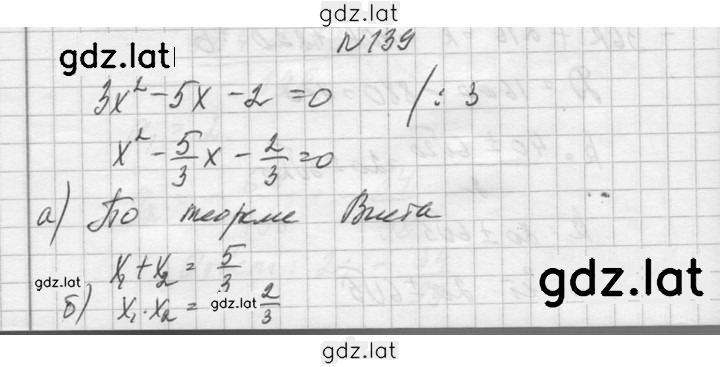 gdz.lat
gdz.lat
№139
3x² - 5x - 2 = 0 /: 3
x² - 5/3 x - 2/3 = 0
а) По теореме Виета
x₁ + x₂ = 5/3
gdz.lat
gdz.lat
б) x₁ · x₂ = gdz.lat 2/3
gdz.lat